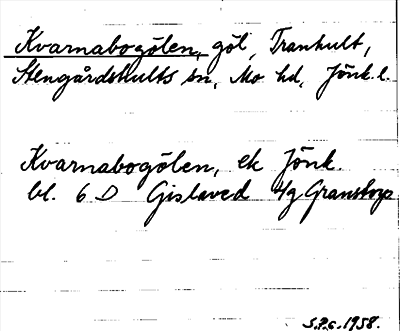 Kvarnabogölen, göl, Tranhult,
Stengårdshults sn, Mo hd, Jönk. l.
Kvarnabogölen, ek Jönk.
bl. 6 D Gislaved 4g Granstorp
S.P.G. 1958.